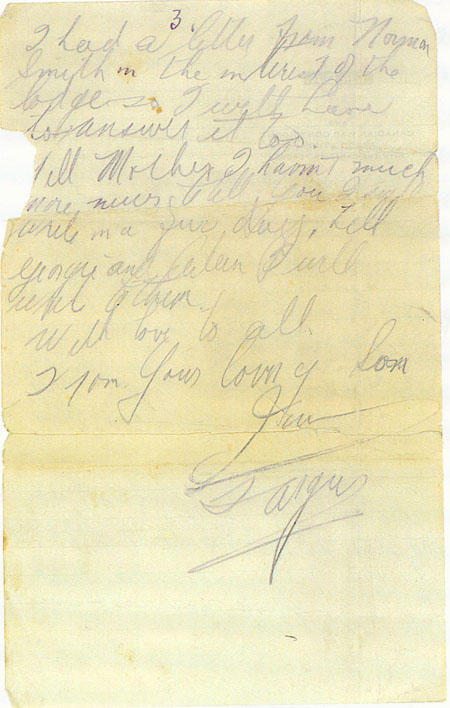 3.
I had a letter from Norman
Smith in the interest of the
lodge so I will have
to answer it too.
Tell Mother I havint much
more news to tell you I will
write in a few days, tell
Georgie and I will
write them.
With love to all.
From Your loving Son
Fargus